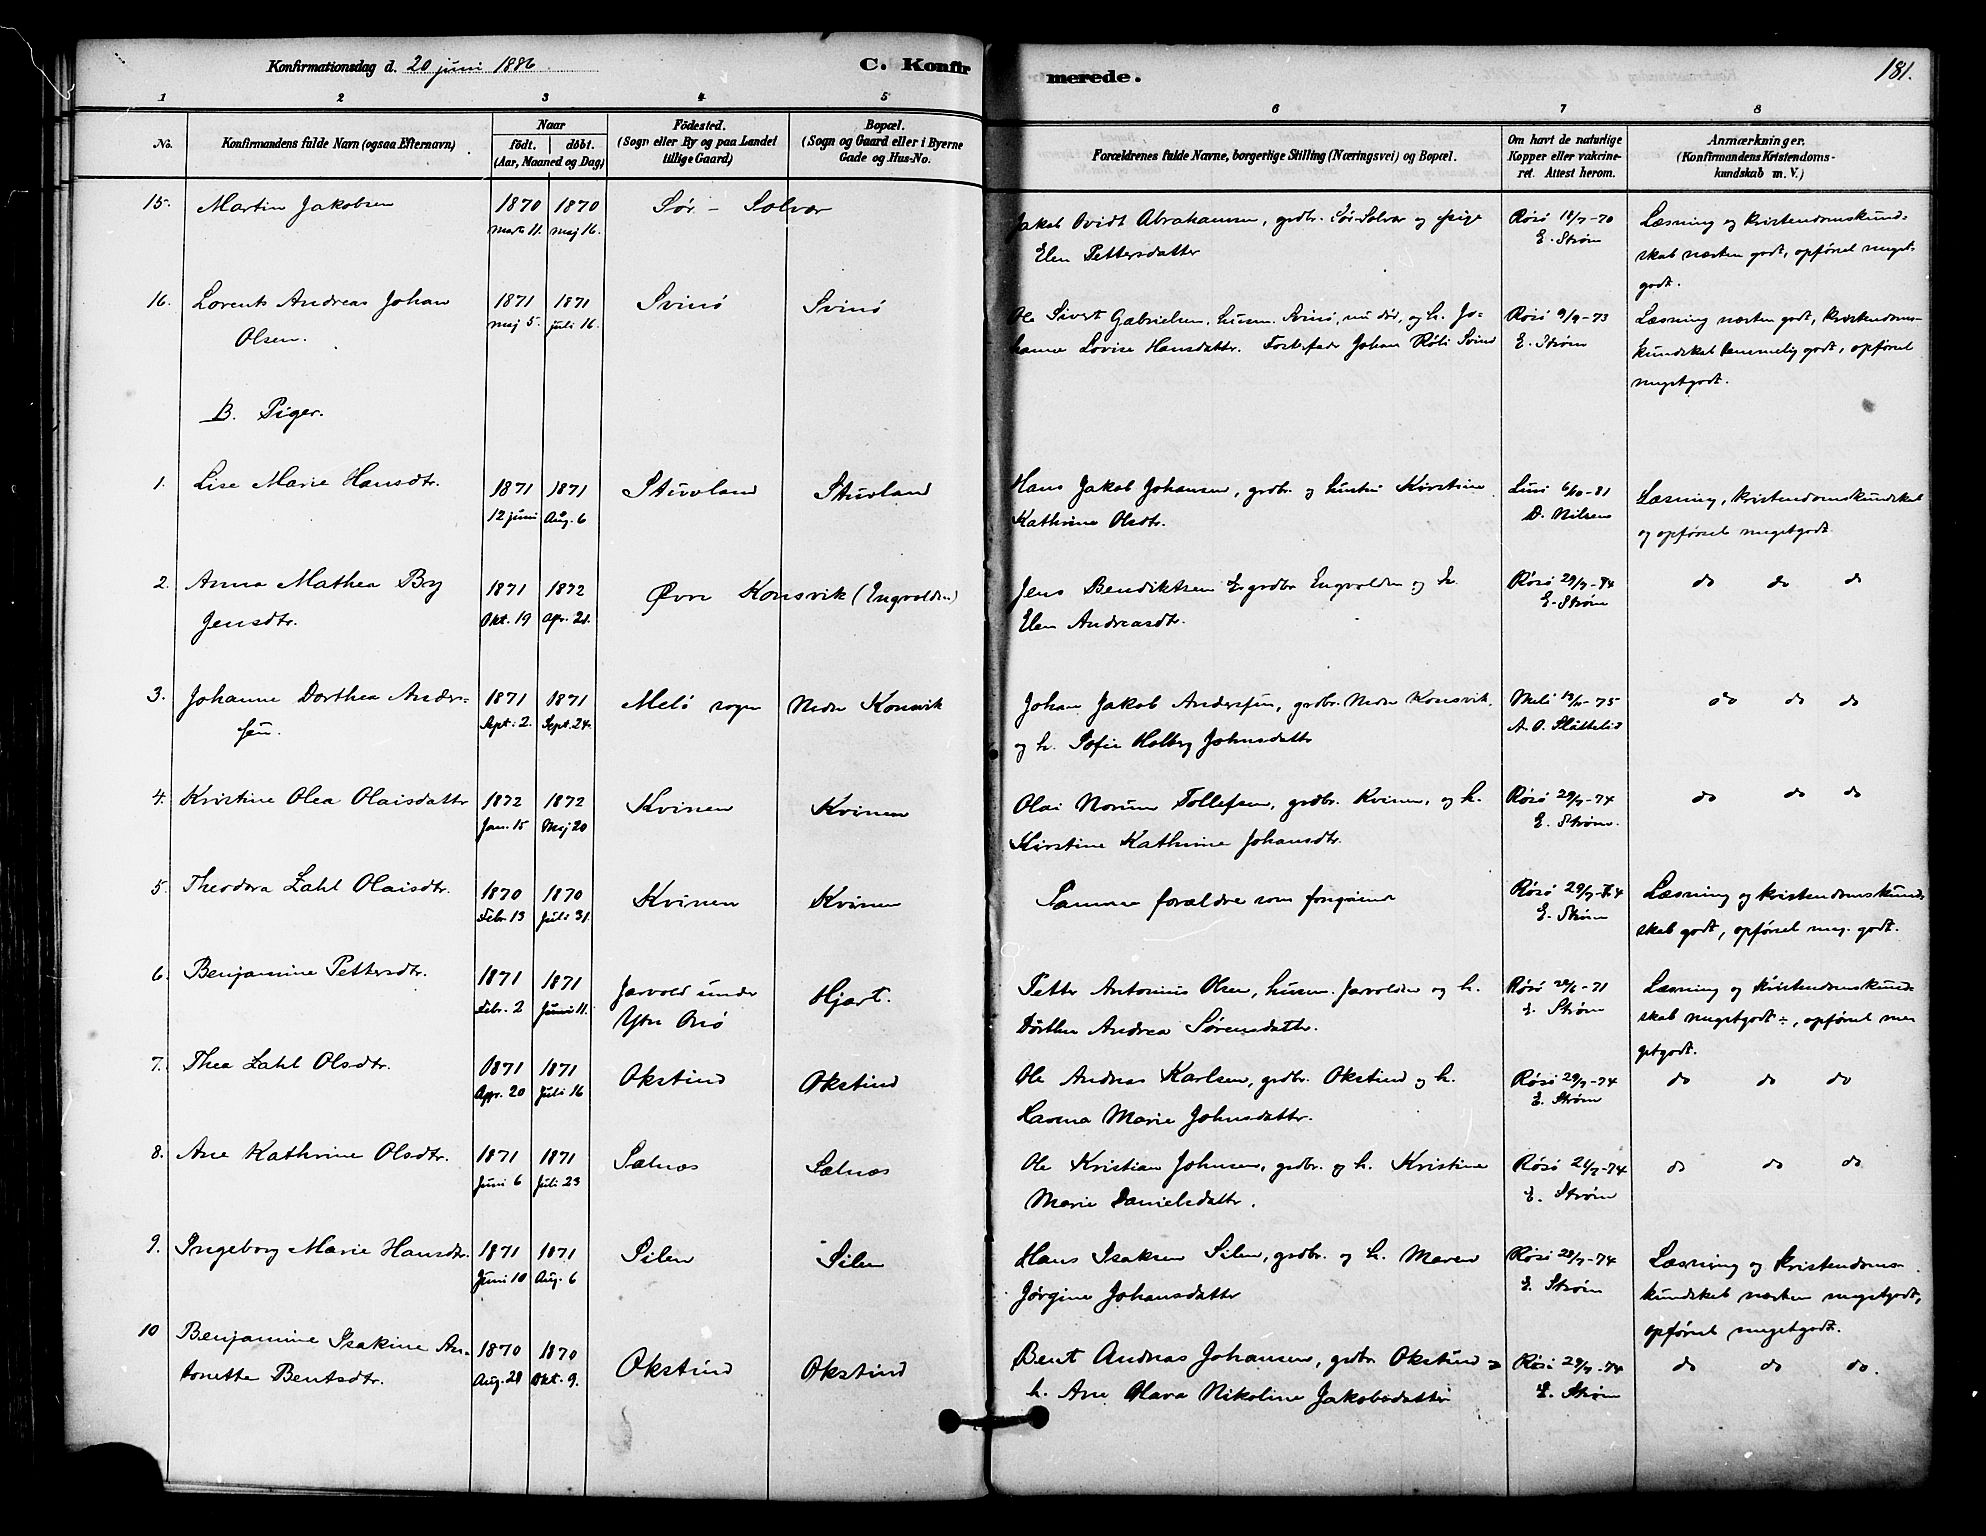 Konfirmationsdag d. 20 juni 1886
C. Konfirmerede.
181.
1 2 3 4 5 6 7 8
No.
Konfirmandens fulde Navn (ogsaa Efternavn)
Naar
födt. döbt.
(Aar, Maaned og Dag)
Födested.
(Sogn eller By og paa Landet
tillige Gaard)
Bopæl.
(Sogn og Gaard eller i Byerne
Gade og Hus-No.
Forældrenes fulde Navne, borgerlige Stilling (Næringsvei) og Bopæl.
Om havt de naturlige
Kopper eller vakcine-
ret. Attest herom.
Anmærkninger.
(Konfirmandens Kristendoms-
kundskab m. V.)
15. Martin Jakobsen 1870 1870 Sør-Solvær
marts 11. maj 16.
Jakob Ovidt Abrahamsen, grdbr. Sør-Solvær og pige
Elen Pettersdatter
Røsö 18/7-70
E. Strøm
Læsning og kristendomskund-
skab næsten godt, opförsel meget
godt.
16. Lorents Andreas Johan
Olsen.
1871 1871 Svinö Svinö
maj 5. juli 16.
Ole Sivert Gabrielsen, husm. Svinö, nu död, og h. Jo-
hanne Lovise Hansdatter. Fosterfader Johan Röli Svinö
Røsö 9/9-73
E. Strøm
Læsning næsten godt, kristendoms-
kundskab temmelig godt, opförsel
megetgodt.
B. Piger.
1. Lise Marie Hansdtr. 1871 1871 Stuvland Stuvland
12 juni Aug. 6
Hans Jakob Johansen, grdbr. og hustru Kirstine
Kathrine Olsdtr.
Lurö 6/10-81
D. Nilsen
Læsning, kristendomskundskab
og opförsel megetgodt.
2. Anna Mathea By
Jensdtr.
1871 1872 Øvre Konsvik (Engvolden)
Okt. 19 Apr. 21.
Jens Bendiktsen grdbr Engvolden og h.
Elen Andreasdtr.
Røsö 29/7-74
E. Strøm
do do do
3. Johanne Dorthea Ander-
sen.
1871 1871 Melö sogn Nedre Konsvik
Sept. 2. Sept. 24.
Johan Jakob Andersen, grdbr. Nedre Konsvik,
og h. Sofie Holberg Johnsdatter
Melö 75
A. O. Slåttelid
do do do
4. Kristine Olea Olaisdatter 1872 1872 Kvinen Kvinen
Jan. 15 Maj 20
Olai Norum Tollefsen, grdbr. Kvinen, og h.
Kirstine Kathrine Johansdtr.
Røsö 29/7-74
E. Strøm.
do do do
5. Theodora Zahl Olaisdtr. 1870 1870 Kvinen Kvinen
Febr. 13 Juli 31.
Samme forældre som foregående
Røsö 29/7-74
E. Strøm
Læsning og kristendomskund-
skab godt, opförsel meg. godt.
6. Benjamine Pettersdtr. 1871 1871 Jarvold under
Ytre Onö
Hjart.
Febr. 2 Juni 11.
Petter Antonius Olsen, husm. Jarvolden og h.
Dorthea Andrea Sørensdatter.
Røsö 71
E. Strøm
Læsning og kristendomskund-
skab megetgodt ÷, opförsel me-
getgodt.
7. Thea Zahl Olsdtr. 1871 1871 Okstind Okstind
Apr. 20 Juli 16
Ole Andreas Karlsen, grdbr. Okstind og h.
Hanna Marie Johnsdatter.
Røsö 29/7-74
E. Strøm
do do do
8. Ane Kathrine Olsdtr. 1871 1871 Selnæs Selnæs
Juni 6 Juli 23
Ole Kristian Johnsen, grdbr. og h. Kristine
Marie Danielsdatter.
Røsö 21/7-74
E. Strøm
do do do
9. Ingeborg Marie Hansdtr. 1871 1871 Silen Silen
Juni 10 Aug. 6
Hans Isaksen Silen, grdbr. og h. Maren
Jørgine Johansdatter
Røsö 28/7-74
E. Strøm
Læsning og kristendoms-
kundskab næsten megetgodt,
opförsel megetgodt.
10 Benjamine Isakine An-
tonette Bentsdtr.
1870 1870 Okstind Okstind
Aug. 28 Okt. 9.
Bent Andreas Johansen, grdbr Okstind og
h. Ane Olava Nikoline Jakobsdatter
Røsö 29/7-74
E. Strøm
do do do.